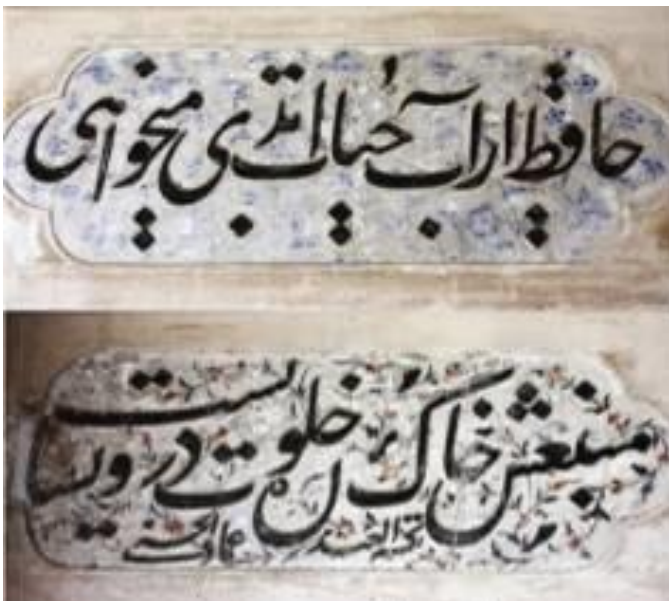 حافظ ار آب حیات ابدی میخواهی
منبعش خاک در خلوت درویشانست
عماد الحسنی